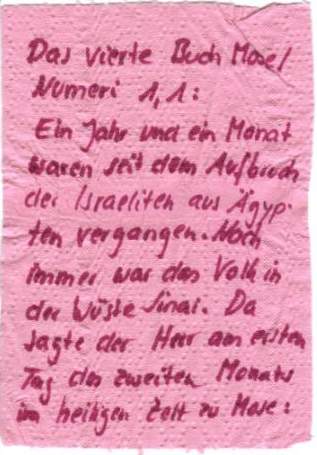 Das vierte Buch Mose/
Numeri 1,1:
Ein Jahr und ein Monat
waren seit dem Aufbruch
der Israeliten aus Ägyp-
ten vergangen. Noch
immer war das Volk in
der Wüste Sinai. Da
sagte der Herr am ersten
Tag des zweiten Monats
im heiligen Zelt zu Mose: